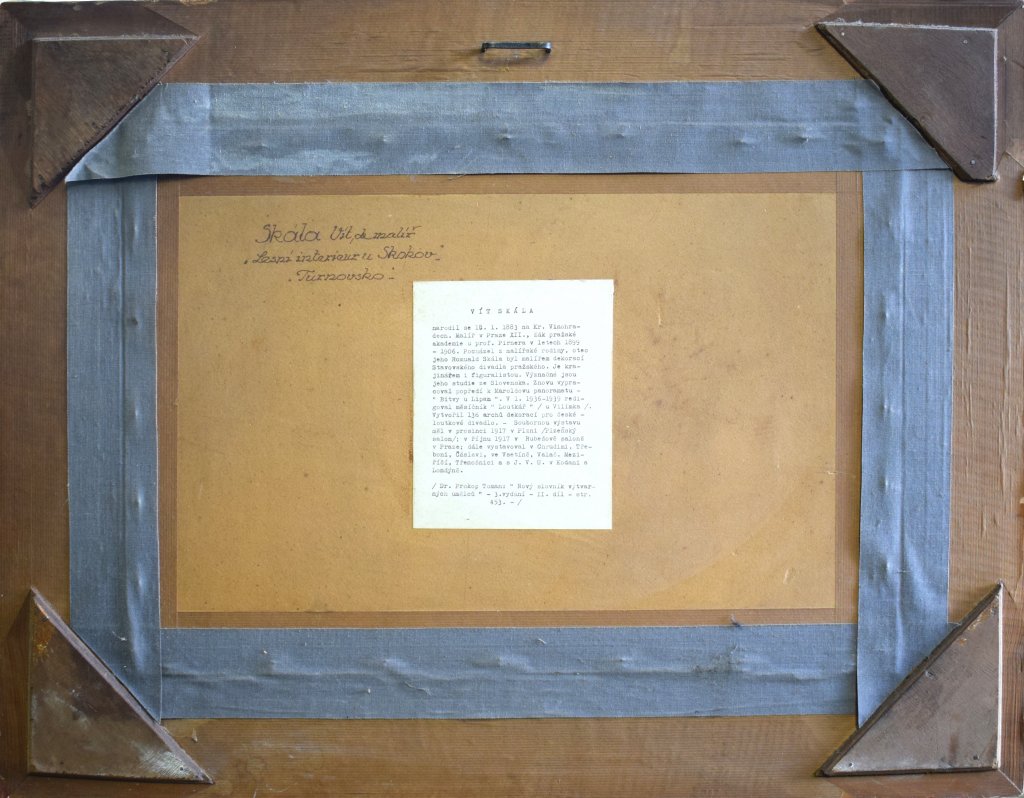 Skála Vít, ak. malíř
„Lesní interieur u Skokov"
- Turnovsko -
VÍT SKÁLA
narodil se 12. 1. 1883 na Kr. Vinohra-
dech. Malíř v Praze XII., žák pražské
akademie u prof. Pirnera v letech 1899
- 1906. Pocházel z malířské rodiny, otec
jeho Romuald Skála byl malířem dekorací
Stavovského divadla pražského. Je kra-
jinářem i figuralistou. Význačné jsou
jeho studie ze Slovenska. Znovu vypra-
coval popředí k Maroldovu panoramatu -
" Bitvy u Lipan ". V l. 1936-1939 redi-
goval měsíčník " Loutkář " / u Vilímka /.
Vytvořil 136 archů dekorací pro české -
loutkové divadlo. - Soubornou výstavu
měl v prosinci 1917 v Plzni /Plzeňský
salon/; v říjnu 1917 v Rubešově saloně
v Praze; dále vystavoval v Chrudimi, Tře-
boni, Čáslavi, ve Vsetíně, Valaš. Mezi-
říčí, Třemošnici a s J. V. U. v Kodani a
Londýně.
/ Dr. Prokop Toman: " Nový slovník výtvar-
ných umělců " - 3.vydání - II. díl - str.
453. - /